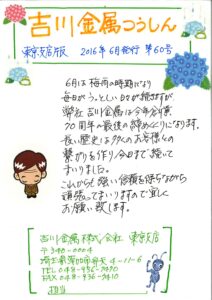 吉川金属つうしん
東京支店版 2016年6月発行 第60号
6月は梅雨の時期になり
毎日がうっとしい日々が続きますが
弊社吉川金属は今年創業
70周年の最後の締めくくりになります。
長い歴史は多くのお客様との
繋がりを作り今日まで続って
まいりました。
これからも強い信頼を保ちながら
頑張ってまいりますので宜しく
お願い致します。
吉川金属株式会社 東京支店
〒340-0004
埼玉県草加市弁天4-11-6
TEL 048-936-9490
FAX 048-936-9410